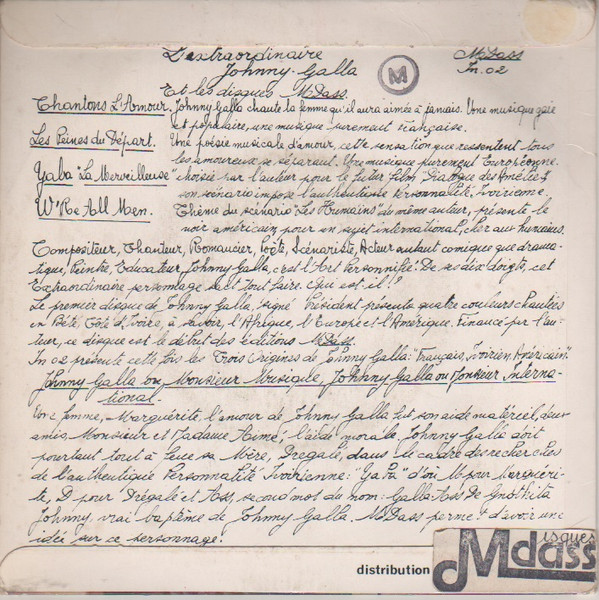 L'extraordinaire
Johnny-Galla
Et les disques MDass.
M
MDass
In.02
Chantons L'Amour. Johnny Galla chante la femme qu'il aura aimée à jamais. Une musique gaie
et populaire, une musique purement Française.
Les Peines du Départ. Une poésie musicale d'amour, cette sensation que ressentent tous
les amoureux se séparant. Une musique purement Européenne
Yaba "La Merveilleuse" choisie par l'auteur pour le futur film "Dialogue des Amélie"
son scénario impose l'authentique Personnalité Ivoirienne.
W'Re All Men. Thème du scénario "Les Humains" du même auteur, présente le
noir américain pour en sujet international, cher aux humains.
Compositeur, Chanteur, Romancier, Poète, Scénariste, Acteur autant comique que drama-
tique, Peintre, Educateur, Johnny Galla, c'est l'Art Personnifié. De ses dix doigts, cet
Extraordinaire personnage sait tout faire. Qui est-il!?
Le premier disque de Johnny Galla, signé Président présente quatre couleurs chantées
en Bété, Côte d'Ivoire, à savoir, l'Afrique, l'Europe et l'Amérique. Financé par l'au-
teur, ce disque est le début des éditions MDass.
In 02 présente cette fois les Trois Origines de Johnny Galla: "Français, Ivoirien, Américain".
Johnny Galla ou Monsieur Musique, Johnny Galla ou Monsieur Interna-
tional.-
Une femme, Marguérite l'amour de Johnny Galla est son aide matériel, deux
amis, Monsieur et Madame Aimé, l'aide morale. Johnny Galla doit
pourtant tout à Luce sa Mère, Dregale, dans le cadre des recherches
de l'authentique Personnalité Ivoirienne: "Yaba" d'où M pour Marguéri-
te, D pour Drégale et Ass, second mot du nom: Galla Ass De
Johnny, vrai baptème de Johnny Galla. MDass permet d'avoir une
idée sur ce personnage.
distribution
disques
Mdass